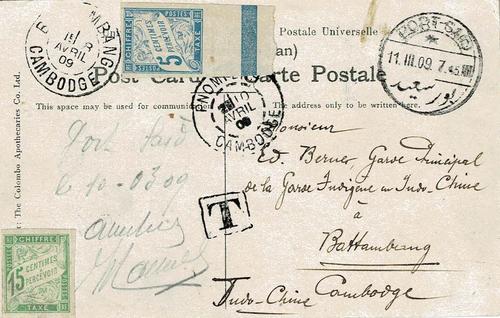 Postale Universelle
Post Card Carte Postale
This space may be used for
The address only to be written here.
The Colombo Apothecaries Co. Ltd.
BATTAMBANG
AVRIL
09
CAMBODGE
POSTES
5
CENTIMES
À PERCEVOIR
CHIFFRE
TAXE
PORT-SAID
11.III.09. 7.45
بور سعيد
PNOMPENH
AVRIL
09
CAMBODGE
Port Said
le 10-03 09
Monsieur
Ed. Berner, Garde Principal
de la Garde Indigène en Indo-Chine
à
Battambang
Indo-Chine Cambodge
T
CHIFFRE
15
CENTIMES
À PERCEVOIR
TAXE